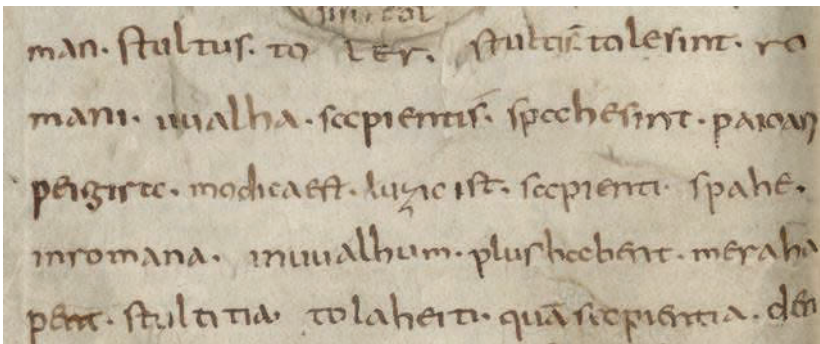 man. stultus. toler. stultis̄. tolesint. ro
mani. uualha. sapientis̄. spahesint. paioari
peigira. modica est. luzic ist. sapienti. spahe.
inromana. inuualhum. plushabent. meraha
pent. stultitia. tolaheiti. quā sapientia. den